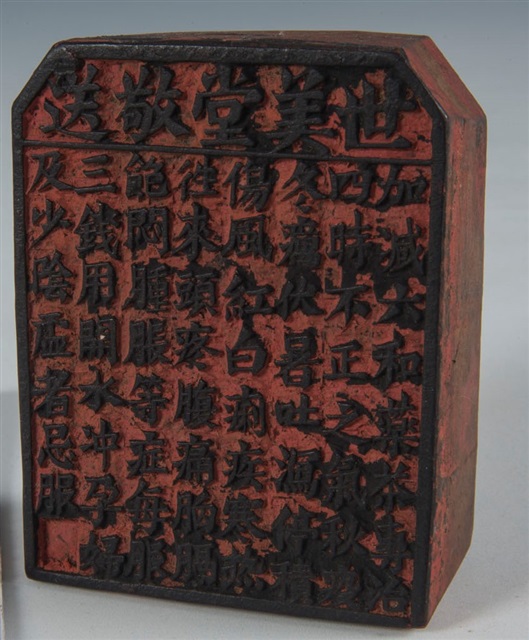 世美堂敬送
加減六和藥茶專治
四時不正之氣秋
冬瘟伏暑吐瀉停積
傷風紅白痢疾寒熱
往來頭疼腹痛胸膈
飽悶腫脹等症每服
三錢用開水冲孕婦
及少陰虛者忌服